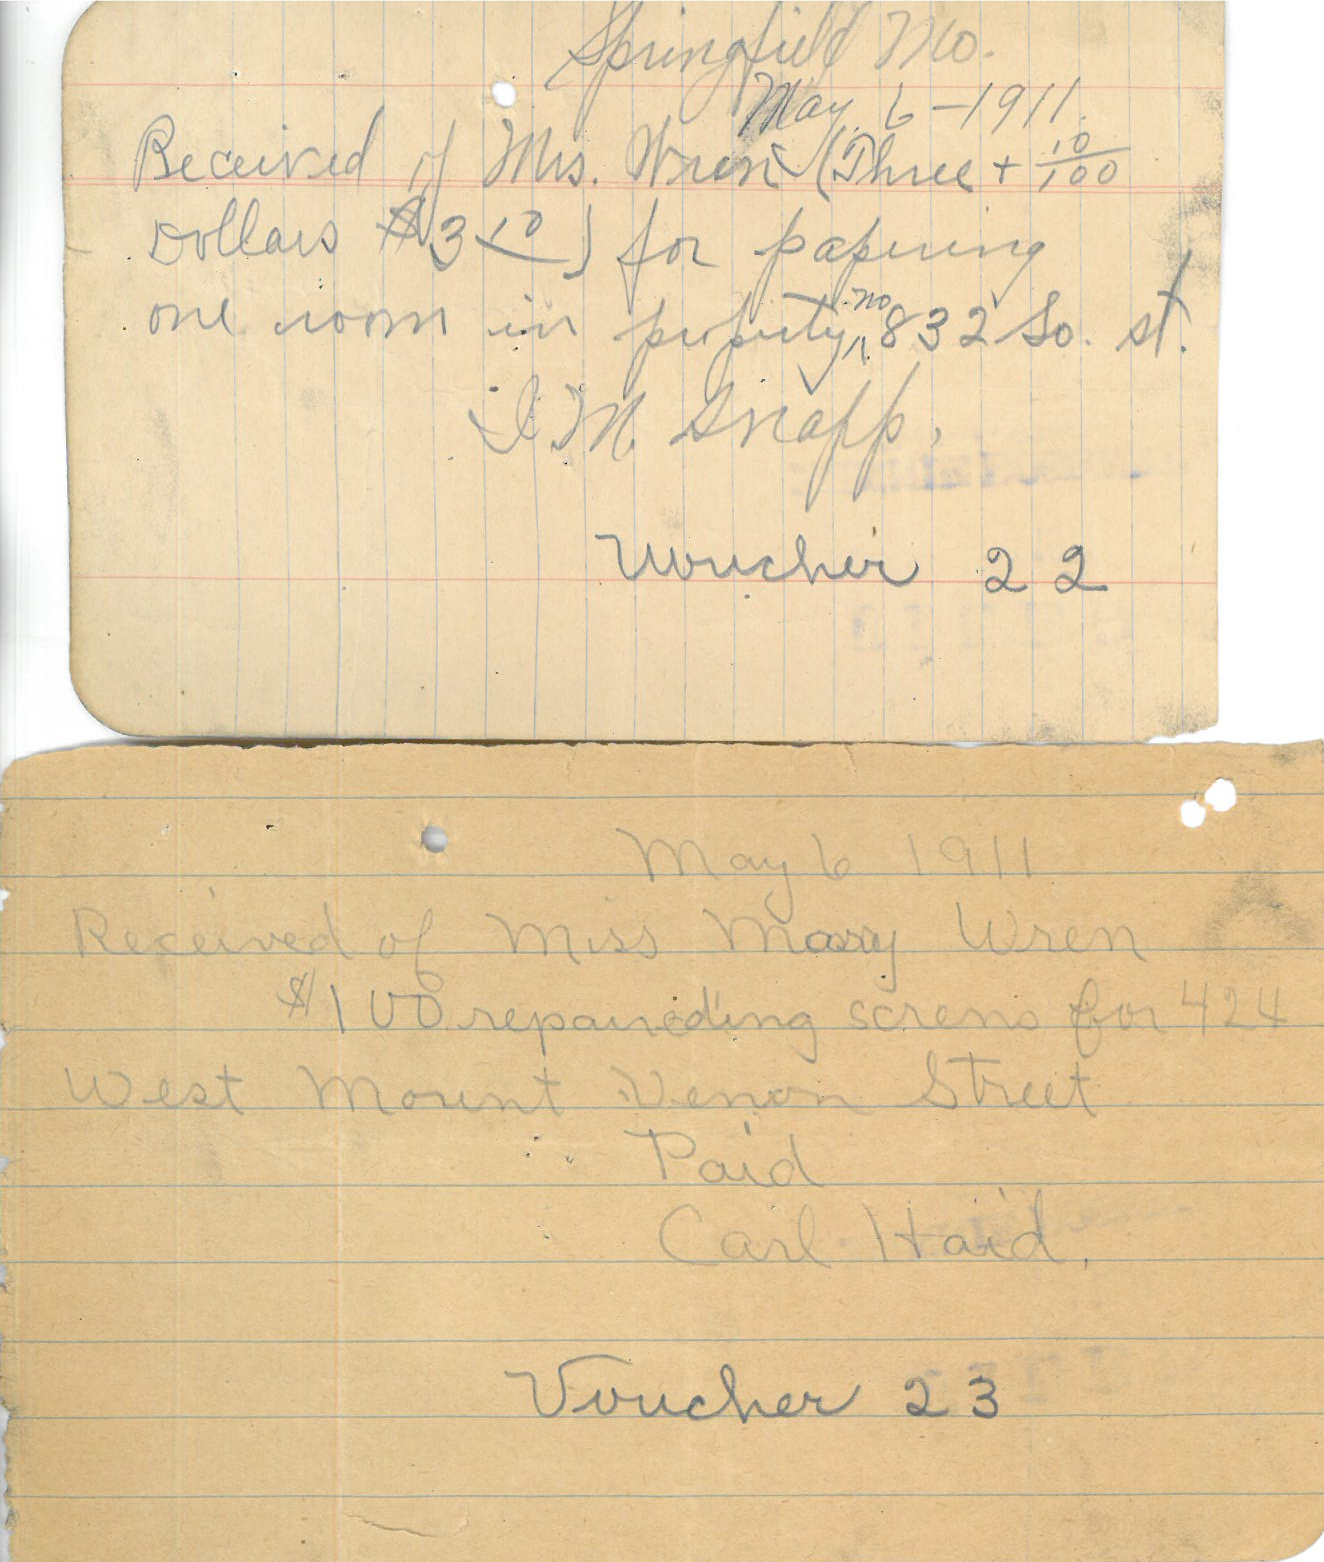 Springfield Mo.
May 6 - 1911.
Received of Mrs. Wren (Three + 10/100
Dollars $3 10) for papering
one room in property, no 832 So. st.
I M Snapp.
Voucher 22
May 6 1911
Received of Miss Mary Wren
$1 00 repaireding screns for 424
West Mount Venon Street
Paid
Carl Haid.
Voucher 23